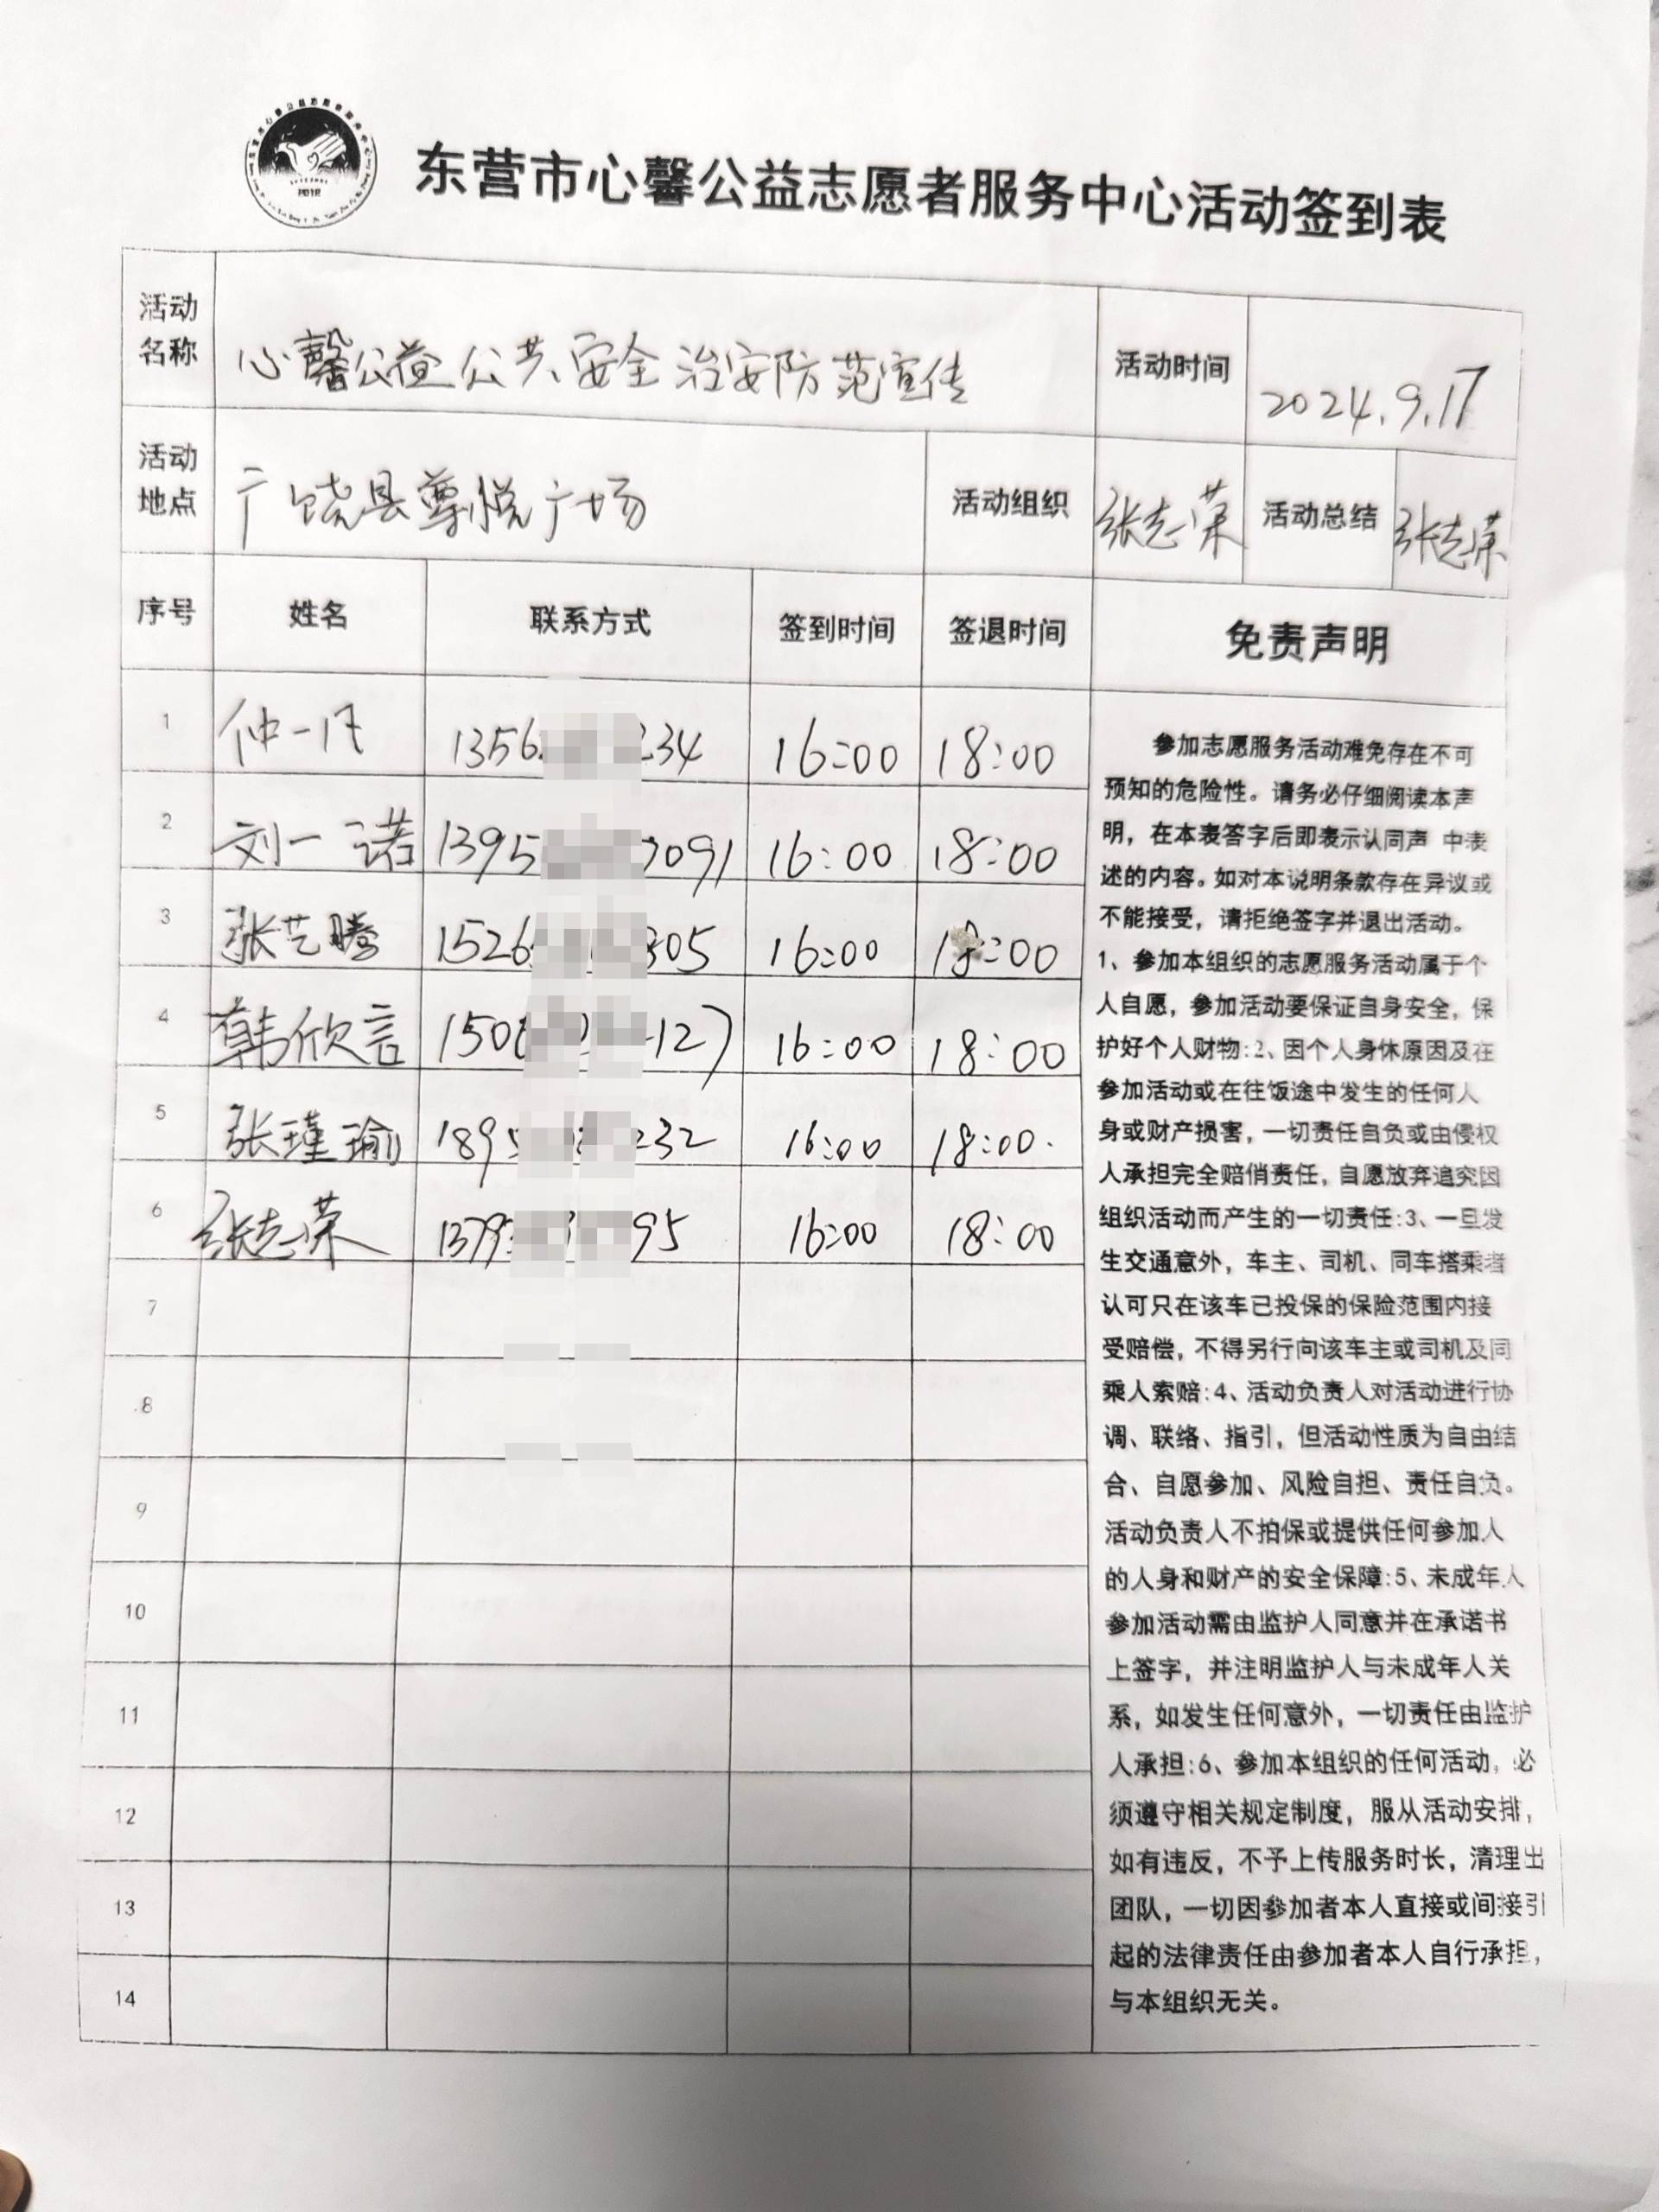 东营市心馨公益志愿者服务中心活动签到表
2012
活动名称 心馨公益公共安全治安防范宣传 活动时间 2024.9.17
活动地点 广饶县尊悦广场 活动组织 张志荣 活动总结 张志荣
序号 姓名 联系方式 签到时间 签退时间 免责声明
1 仲一 1356 234 16:00 18:00
2 刘一诺 1395 091 16:00 18:00
3 张艺腾 1526 305 16:00 18:00
4 韩欣言 150 127 16:00 18:00
5 张瑾瑜 1895 232 16:00 18:00.
6 张志荣 1379 95 16:00 18:00
7
8
9
10
11
12
13
14
参加志愿服务活动难免存在不可
预知的危险性。请务必仔细阅读本声
明，在本表答字后即表示认同声 中表
述的内容。如对本说明条款存在异议或
不能接受，请拒绝签字并退出活动。
1、参加本组织的志愿服务活动属于个
人自愿，参加活动要保证自身安全，保
护好个人财物:2、因个人身休原因及在
参加活动或在往饭途中发生的任何人
身或财产损害，一切责任自负或由侵权
人承担完全赔俏责任，自愿放弃追究因
组织活动而产生的一切责任:3、一旦发
生交通意外，车主、司机、同车搭乘者
认可只在该车已投保的保险范围内接
受赔偿，不得另行向该车主或司机及同
乘人索赔:4、活动负责人对活动进行协
调、联络、指引，但活动性质为自由结
合、自愿参加、风险自担、责任自负。
活动负责人不拍保或提供任何参加人
的人身和财产的安全保障:5、未成年人
参加活动需由监护人同意并在承诺书
上签字，并注明监护人与未成年人关
系，如发生任何意外，一切责任由监护
人承担:6、参加本组织的任何活动，必
须遵守相关规定制度，服从活动安排，
如有违反，不予上传服务时长，清理出
团队，一切因参加者本人直接或间接引
起的法律责任由参加者本人自行承担，
与本组织无关。